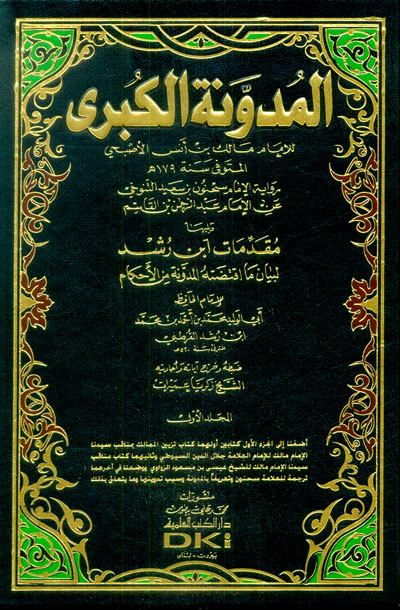 المدونة الكبرى
للإمام مالك بن أنس الأصبحي
المتوفى سنة ١٧٩هـ
رواية الإمام سحنون بن سعيد التنوخي
عن الإمام عبد الرحمن بن القاسم
ويليها
مقدمات ابن رشد
لبيان ما اقتضته المدونة من الأحكام
للإمام الحافظ
أبي الوليد محمد بن أحمد بن محمد
ابن رشد القرطبي
المتوفى سنة ٥٢٠هـ
ضبطه وخرج آياته وأحاديثه
الشيخ زكريا عميرات
المجلد الأول
أضفنا إلى الجزء الأول كتابين أولهما كتاب تزيين الممالك بمناقب سيدنا
الإمام مالك للإمام العلامة جلال الدين السيوطي وثانيهما كتاب مناقب
سيدنا الإمام مالك للشيخ عيسى بن مسعود الزواوي ووضعنا في آخرهما
ترجمة للعلامة سحنون وتعريفاً بالمدونة وسبب تدوينها وما يتعلق بذلك
منشورات
محمد علي بيضون
دار الكتب العلمية
DKi
بيروت - لبنان